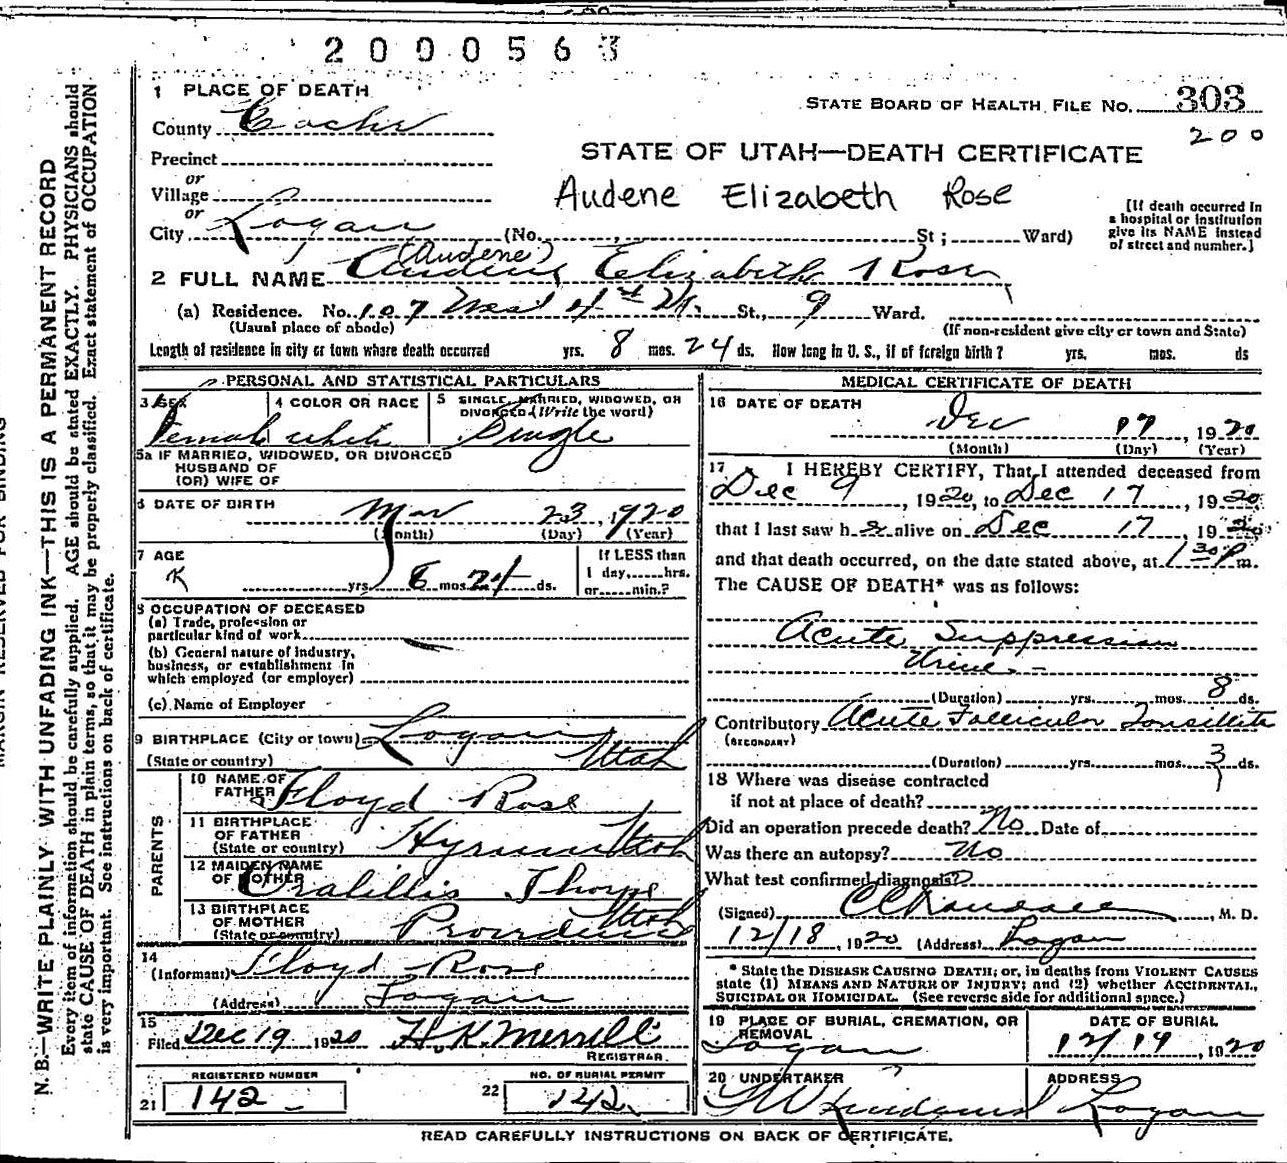 2000563
1 PLACE OF DEATH
STATE BOARD OF HEALTH FILE No. 303
200
County Cache
STATE OF UTAH—DEATH CERTIFICATE
Precinct
or
Village
Audene Elizabeth Rose
[If death occurred in a hospital or institution give its NAME instead of street and number.]
or
City Logan (No. , St; Ward)
(Audene)
2 FULL NAME Elizabeth Rose
(a) Residence. No. 107 West St., 9 Ward.
(Usual place of abode)
(If non-resident give city or town and State)
Length of residence in city or town where death occurred yrs. 8 mos. 24 ds. How long in U. S., if of foreign birth? yrs. mos. ds
PERSONAL AND STATISTICAL PARTICULARS
3 SEX
Female
4 COLOR OR RACE
white
5 SINGLE, MARRIED, WIDOWED, OR DIVORCED (Write the word)
Single
5a IF MARRIED, WIDOWED, OR DIVORCED
HUSBAND OF
(OR) WIFE OF
6 DATE OF BIRTH
Mar 23, 1920
(Month) (Day) (Year)
7 AGE
yrs. 8 mos. 24 ds.
If LESS than
1 day, hrs.
or min.?
8 OCCUPATION OF DECEASED
(a) Trade, profession or
particular kind of work
(b) General nature of industry,
business, or establishment in
which employed (or employer)
(c) Name of Employer
9 BIRTHPLACE (City or town) Logan
(State or country) Utah
PARENTS
10 NAME OF
FATHER Floyd Rose
11 BIRTHPLACE
OF FATHER
(State or country) Hyrum Utah
12 MAIDEN NAME
OF MOTHER Thorpe
13 BIRTHPLACE
OF MOTHER
(State or country) Providence Utah
14
(Informant) Floyd Rose
(Address) Logan
15
Filed Dec 19 1920 H.K. Merrill
REGISTRAR
REGISTERED NUMBER
21 142
NO. OF BURIAL PERMIT
22 142
MEDICAL CERTIFICATE OF DEATH
16 DATE OF DEATH
Dec 17, 1920
(Month) (Day) (Year)
17 I HEREBY CERTIFY, That I attended deceased from
Dec 9, 1920, to Dec 17, 1920
that I last saw her alive on Dec 17, 1920
and that death occurred, on the date stated above, at 1 30 P m.
The CAUSE OF DEATH* was as follows:
Acute Suppression
Urine
(Duration) yrs. mos. 8 ds.
Contributory Acute Follicular Tonsillitis
(SECONDARY)
(Duration) yrs. mos. 3 ds.
18 Where was disease contracted
if not at place of death?
Did an operation precede death? No Date of
Was there an autopsy? No
What test confirmed diagnosis?
(Signed) , M. D.
12/18, 1920 (Address) Logan
* State the DISEASE CAUSING DEATH; or, in deaths from VIOLENT CAUSES
state (1) MEANS AND NATURE OF INJURY; and (2) whether ACCIDENTAL,
SUICIDAL OR HOMICIDAL. (See reverse side for additional space.)
19 PLACE OF BURIAL, CREMATION, OR
REMOVAL
Logan
DATE OF BURIAL
12/19, 1920
20 UNDERTAKER
ADDRESS
Logan
READ CAREFULLY INSTRUCTIONS ON BACK OF CERTIFICATE.
MARGIN RESERVED FOR BINDING
N. B.—WRITE PLAINLY WITH UNFADING INK—THIS IS A PERMANENT RECORD
Every item of information should be carefully supplied. AGE should be stated EXACTLY. PHYSICIANS should
state CAUSE OF DEATH in plain terms, so that it may be properly classified. Exact statement of OCCUPATION
is very important. See instructions on back of certificate.